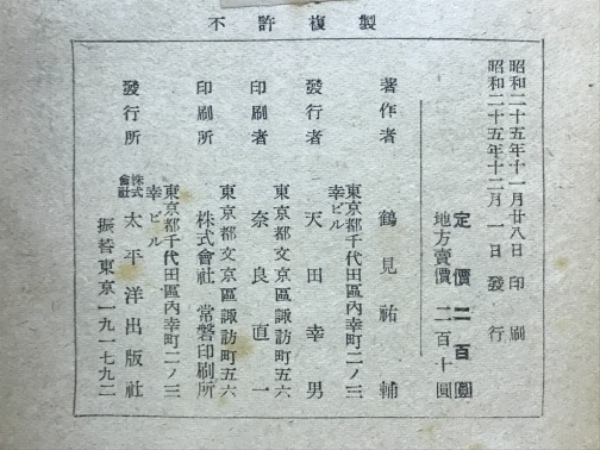 不許複製
昭和二十五年十一月廿八日 印刷
昭和二十五年十二月一日 發行
定價 二百圓
地方賣價 二百十圓
著作者 鶴見祐輔
東京都千代田區內幸町二ノ三
幸ビル
發行者 天田幸男
東京都文京區諏訪町五六
印刷者 奈良直一
東京都文京區諏訪町五六
印刷所 株式會社 常磐印刷所
東京都千代田區內幸町二ノ三
幸ビル
發行所 株式會社 太平洋出版社
振替東京一九一七九二